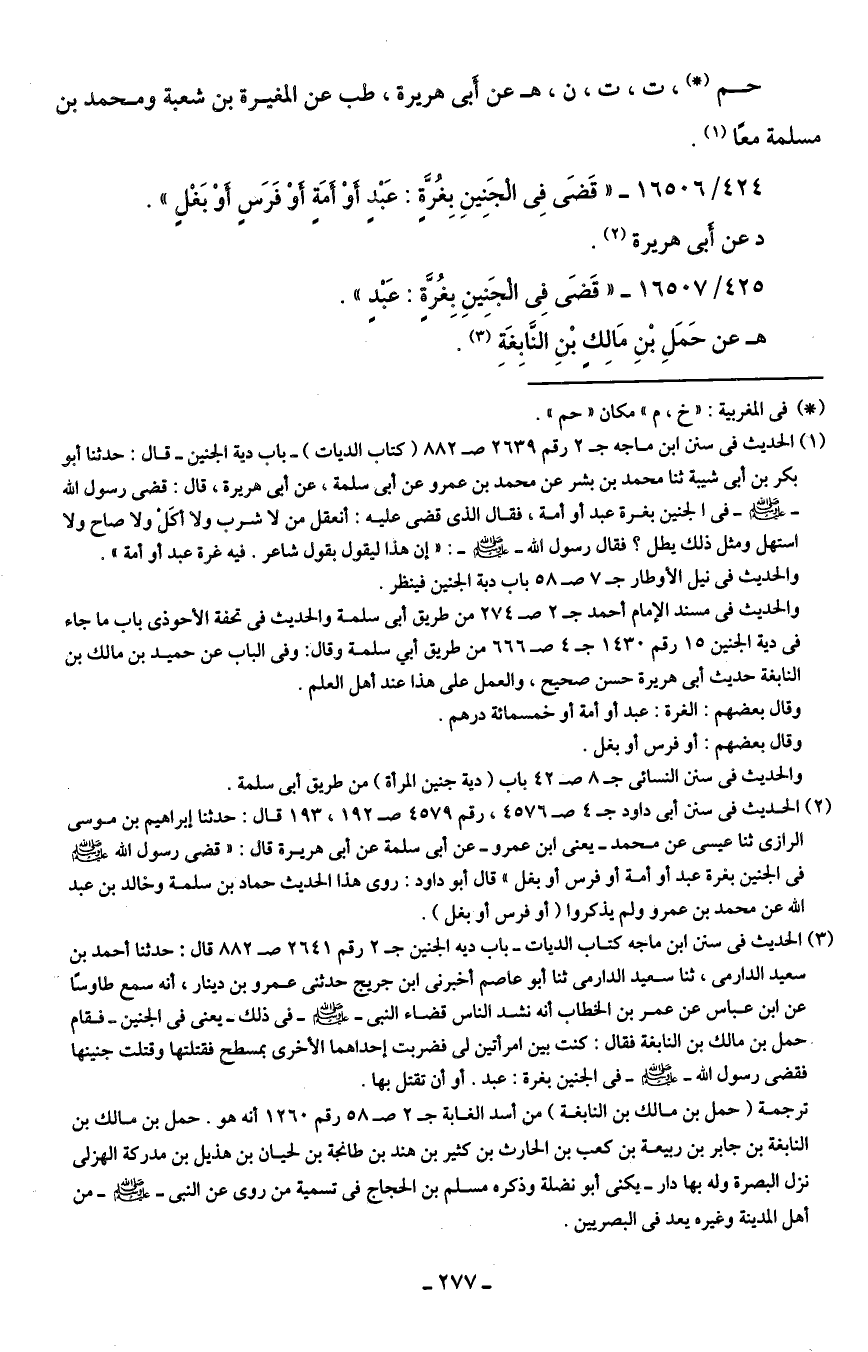 حـم (*) ، ت ، ت ، ن ، هـ عن أَبى هريرة ، طب عن المغيرة بن شعبة ومـحمد بن
مسلمة معًا (١) .
٤٢٤/ ١٦٥٠٦ ـ « قَضَى فِى الْجَنِينِ بِغُرَّةٍ : عَبْدٍ أَوْ أَمَةٍ أَوْ فَرَسٍ أَوْ بَغْلٍ » .
د عن أَبى هريرة (٢) .
٤٢٥/ ١٦٥٠٧ ـ « قَضَى فِى الْجَنِينِ بِغُرَّةٍ : عَبْدٍ » .
هـ عن حَمَلِ بْنِ مَالِكِ بْنِ النَّابِغَةِ (٣) .
(*) فى المغربية : « خ ، م » مكان « حم » .
(١) الحديث فى سنن ابن ماجه جـ ٢ رقم ٢٦٣٩ صـ ٨٨٢ ( كتاب الديات ) ـ باب دية الجنين ـ قـال : حدثنا أبو
بكر بن أبى شيبة ثنا محمد بن بشر عن محمد بن عمرو عن أبى سلمة ، عن أبى هريرة ، قال : قضى رسول الله
ـ ﷺ ـ فى الجنين بغرة عبد أو أمـة ، فقـال الذى قضى عليـه : أنعقل من لا شـرب ولا أكلْ ولا صاح ولا
استهل ومثل ذلك يطل ؟ فقال رسول الله ـ ﷺ ـ : « إن هذا ليقول بقول شاعر . فيه غرة عبد أو أمة » .
والحديث فى نيل الأوطار جـ ٧ صـ ٥٨ باب دية الجنين فينظر .
والحديث فى مسند الإمام أحمد جـ ٢ صـ ٢٧٤ من طريق أبى سلمـة والحديث فى تحفة الأحوذى باب ما جاء
فى دية الجنين ١٥ رقم ١٤٣٠ جـ ٤ صـ ٦٦٦ من طريق أبي سلمـة وقال: وفى الباب عن حميـد بن مالك بن
النابغة حديث أبى هريرة حسن صحيح ، والعمل على هذا عند أهل العلم .
وقال بعضهم : الغرة : عبد أو أمة أو خمسمائة درهم .
وقال بعضهم : أو فرس أو بغل .
والحديث فى سنن النسائى جـ ٨ صـ ٤٢ باب ( دية جنين المرأة ) من طريق أبى سلمة .
(٢) الحـديث فى سنن أبى داود جـ ٤ صـ ٤٥٧٦ ، رقم ٤٥٧٩ صـ ١٩٢ ، ١٩٣ قـال : حدثنا إبراهيم بن مـوسى
الرازى ثنا عيسى عن مـحمد ـ يعنى ابن عمرو ـ عن أبى سلمة عن أبى هريـرة قال : « قضى رسول الله ﷺ
فى الجنين بغرة عبد أو أمة أو فرس أو بغل » قال أبو داود : روى هذا الحديث حماد بن سلمـة وخالد بن عبد
الله عن محمد بن عمرو ولم يذكروا ( أو فرس أو بغل ) .
(٣) الحديث فى سنن ابن ماجه كتـاب الديات ـ باب ديه الجنين جـ ٢ رقم ٢٦٤١ صـ ٨٨٢ قال : حدثنا أحمد بن
سعيد الدارمى ، ثنا سعيد الدارمى ثنا أبو عاصم أخبرنى ابن جريج حدثنى عـمرو بن دينار ، أنه سمع طاوسًا
عن ابن عبـاس عن عمـر بن الخطاب أنه نشـد الناس قضـاء النبى ـ ﷺ ـ فى ذلك ـ يعنى فى الجنين ـ فـقام
حمل بن مالك بن النابغة فقال : كنت بين امرأتين لى فضربت إحداهما الأخرى بمسطح فقتلتها وقتلت جنينها
فقضى رسول الله ـ ﷺ ـ فى الجنين بغرة : عبد . أو أن تقتل بها .
ترجمـة ( حمل بن مـالك بن النابغـة ) من أسد الغـابة جـ ٢ صـ ٥٨ رقم ١٢٦٠ أنه هو . حمل بن مـالك بن
النابغة بن جابر بن ربيعـة بن كعب بن الحارث بن كثير بن هند بن طانجة بن لحيان بن هذيل بن مدركة الهزلى
نزل البصرة وله بها دار ـ يكنى أبو نضلة وذكره مسلم بن الحجاج فى تسمية من روى عن النبى ـ ﷺ ـ من
أهل المدينة وغيره يعد فى البصريين .
ـ ٢٧٧ ـ